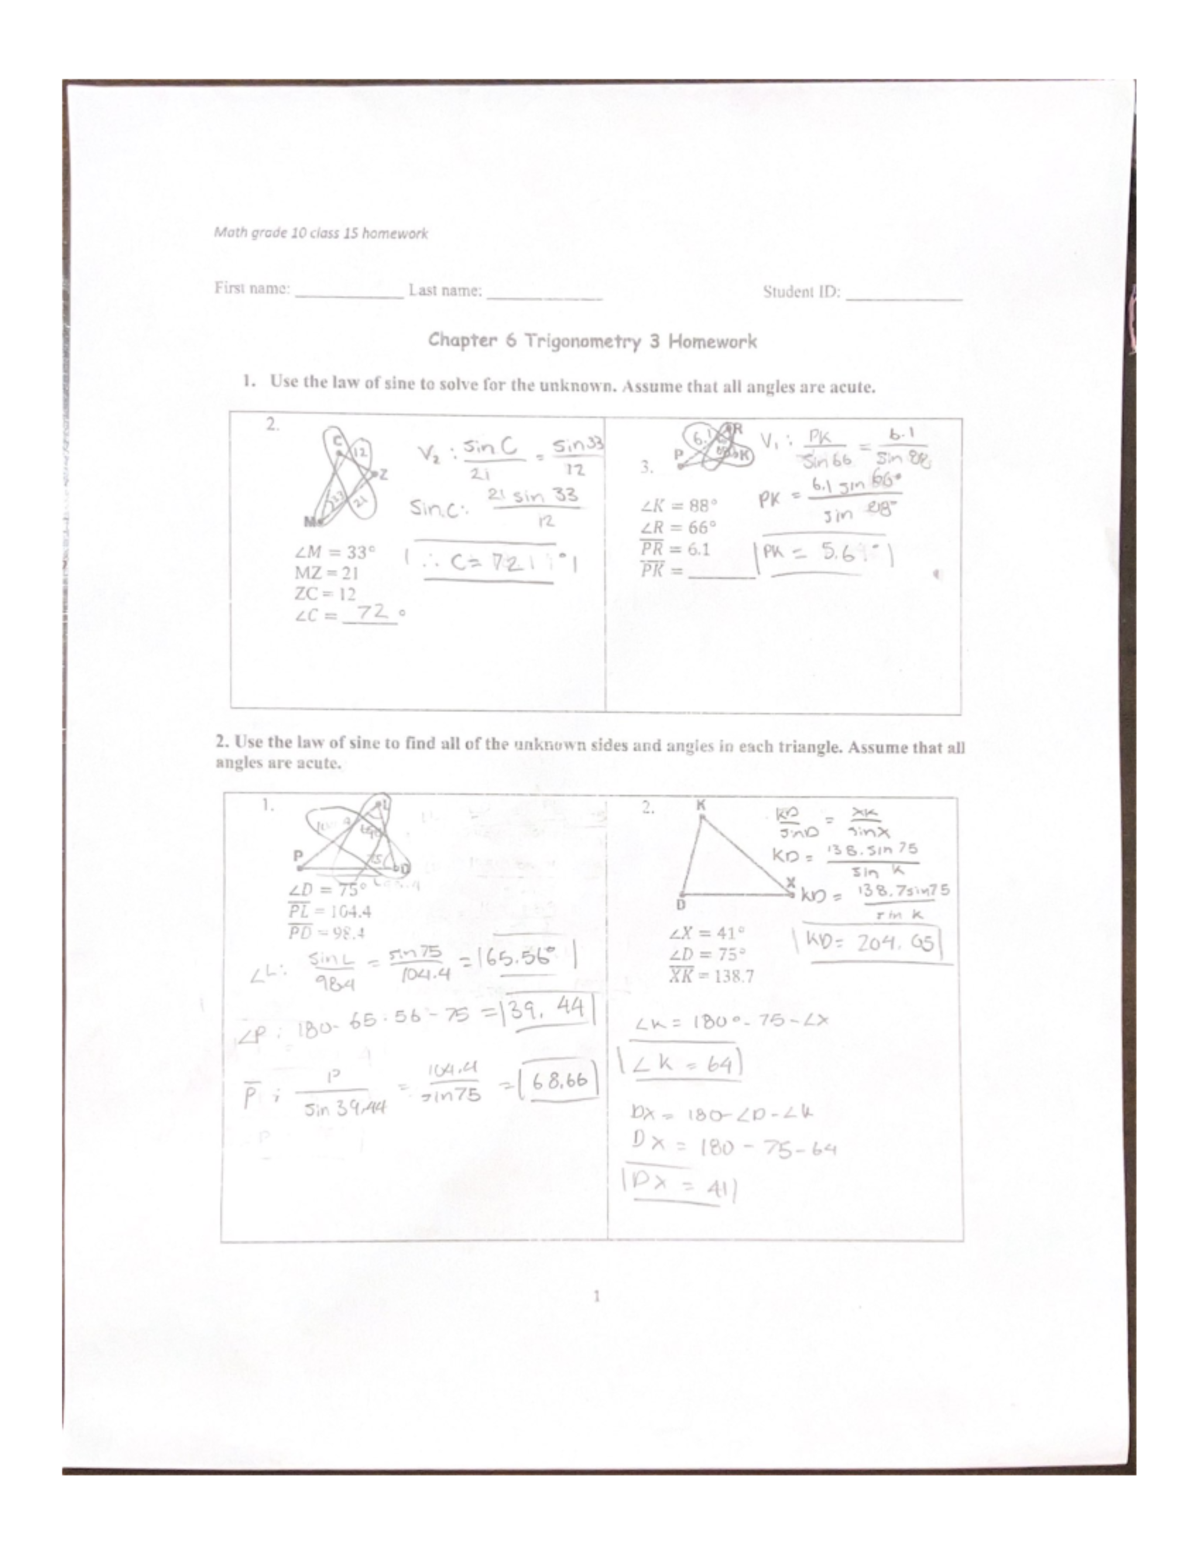 Math grade 10 class 15 homework
First name: ____________ Last name: ____________ Student ID: ____________
Chapter 6 Trigonometry 3 Homework
1. Use the law of sine to solve for the unknown. Assume that all angles are acute.
2.
C
12
Z
33
21
M
V₂ : sin C / 21 = sin 33 / 12
Sin C : 21 sin 33 / 12
∴ C = 72
∠M = 33°
MZ = 21
ZC = 12
∠C = 72 °
3.
6.1
R
P
K
V₁ : PK / sin 66 = 6.1 / sin 88
PK = 6.1 sin 66° / sin 88°
PK = 5.6
∠K = 88°
∠R = 66°
PR = 6.1
PK = _______
2. Use the law of sine to find all of the unknown sides and angles in each triangle. Assume that all
angles are acute.
1.
L
P
75
D
∠D = 75°
PL = 104.4
PD = 98.4
∠L: sin L / 984 = sin 75 / 104.4 = 65.56°
∠P : 180 - 65.56 - 75 = 39.44
P ; P / Sin 39.44 = 104.4 / sin 75 = 68.66
2.
K
D
X
KD / sin D = XK / sin X
KD = 138. sin 75 / sin K
KD = 138.7 sin 75 / sin K
KD = 204.05
∠X = 41°
∠D = 75°
XK = 138.7
∠K = 180° - 75 - ∠X
∠K = 64
DX = 180 - ∠D - ∠K
DX = 180 - 75 - 64
DX = 41
1